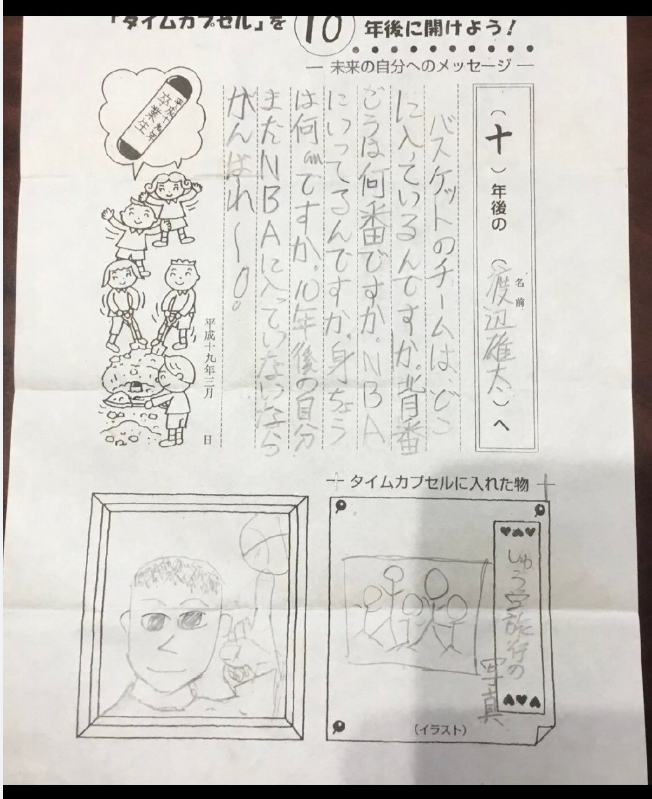 「タイムカプセル」を 10 年後に開けよう!
― 未来の自分へのメッセージ ―
(十)年後の(渡辺雄太)へ
名前
バスケットのチームは、どこ
に入っているんですか。背番
ごうは何番ですか。NBA
にいってるんですか。身ちょう
は何cmですか。10年後の自分
まだNBAに入っていないなら
がんばれ〜0。
平成十九年三月 日
平成十八年度
卒業生
タイムカプセルに入れた物
しゅう学旅行の
写真
(イラスト)